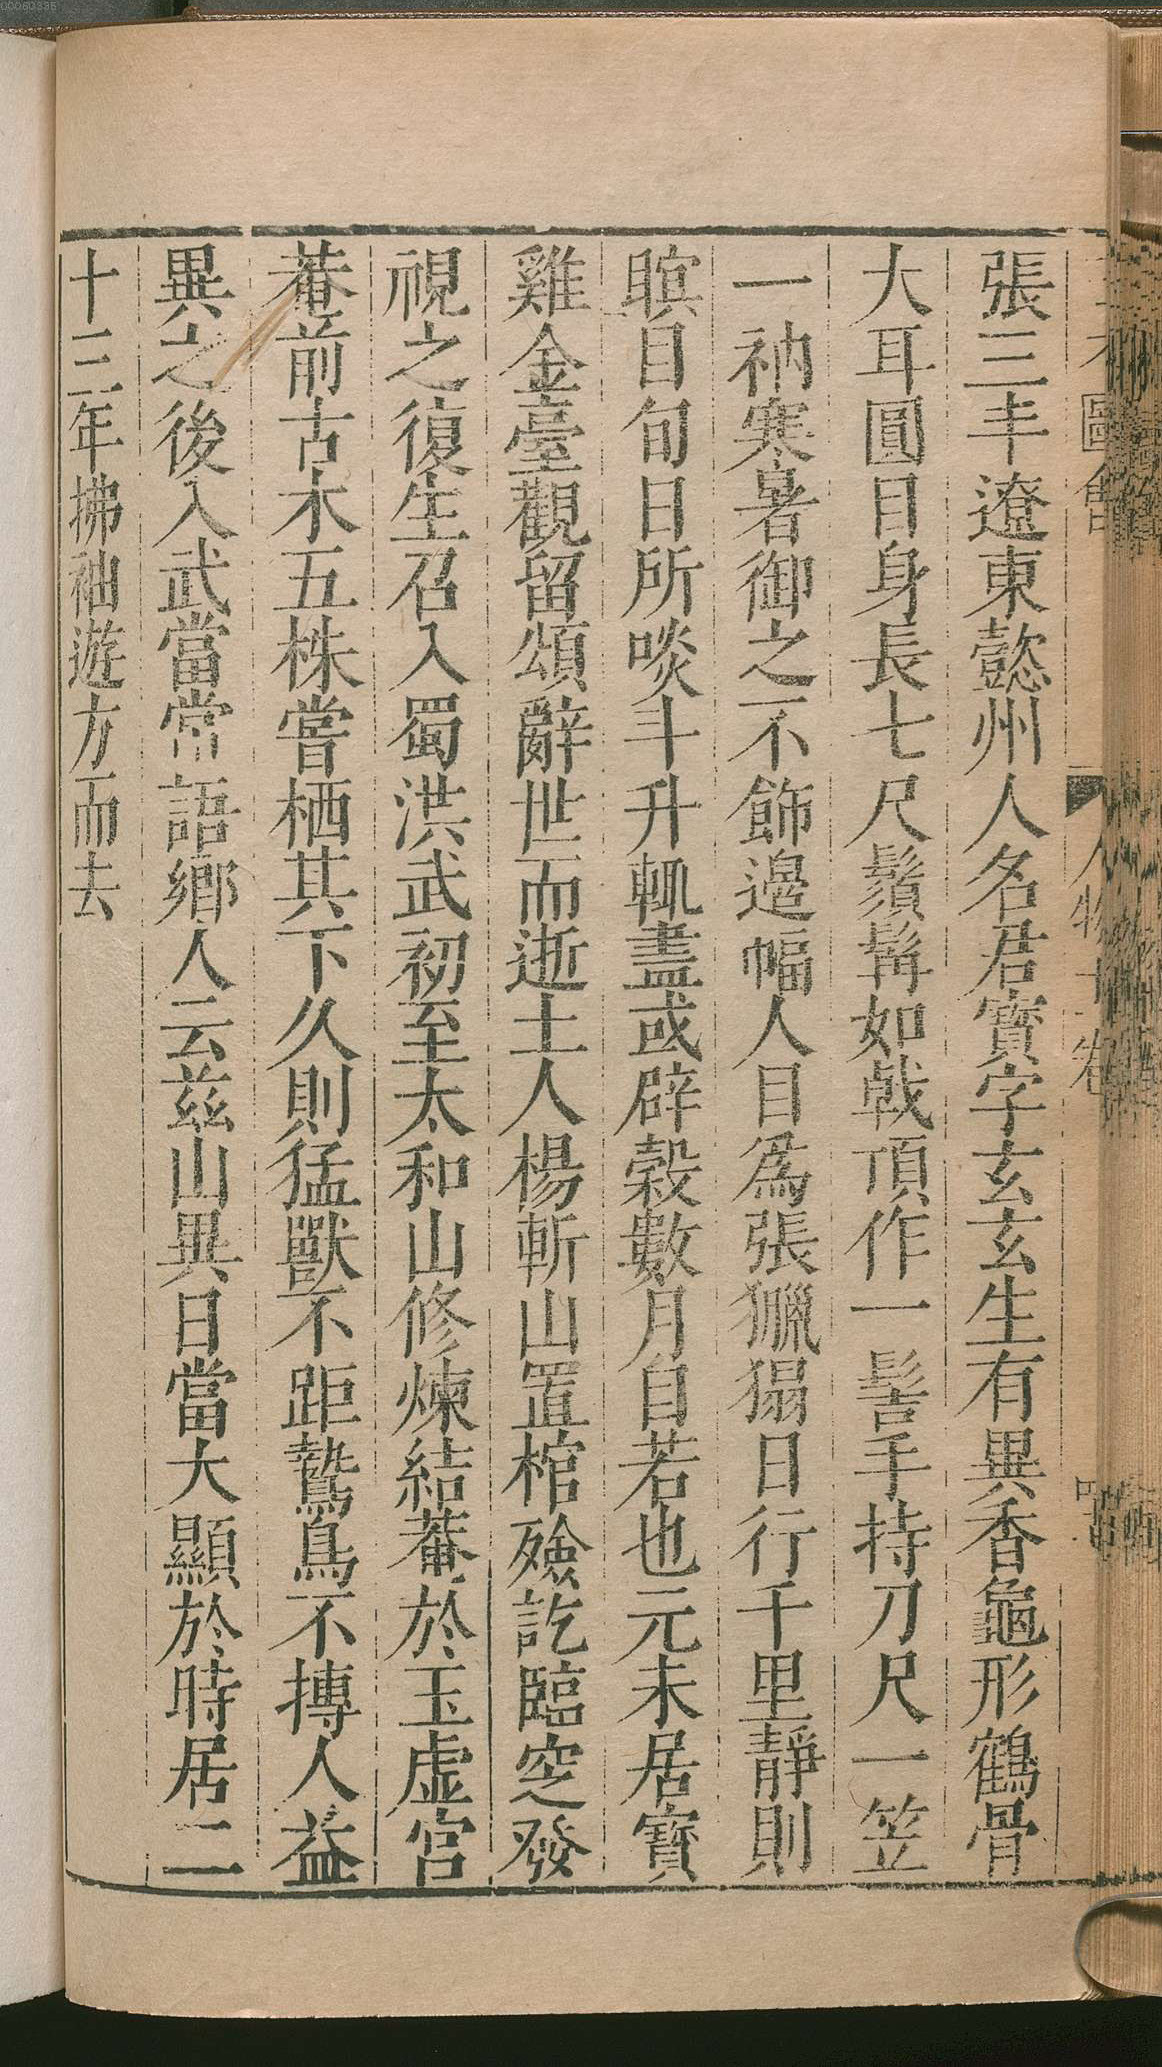 圖會 人物十卷
張三丰遼東懿州人名君寳字玄玄生有異香龜形鶴骨
大耳圓目身長七尺鬚髯如戟頂作一髻手持刀尺一笠
一衲寒暑御之不飾邉幅人目為張獵獦日行千里靜則
瞑目旬日所啖斗升輒盡或辟榖數月自若也元末居寳
雞金臺觀留頌辭世而逝土人楊斬山置棺殮訖臨窆發
視之復生召入蜀洪武初至太和山修煉結菴於玉虚宮
菴前古木五株嘗栖其下久則猛獸不距鷙鳥不摶人益
異之後入武當常語鄉人云兹山異日當大顯於時居二
十三年拂袖遊方而去
00060335